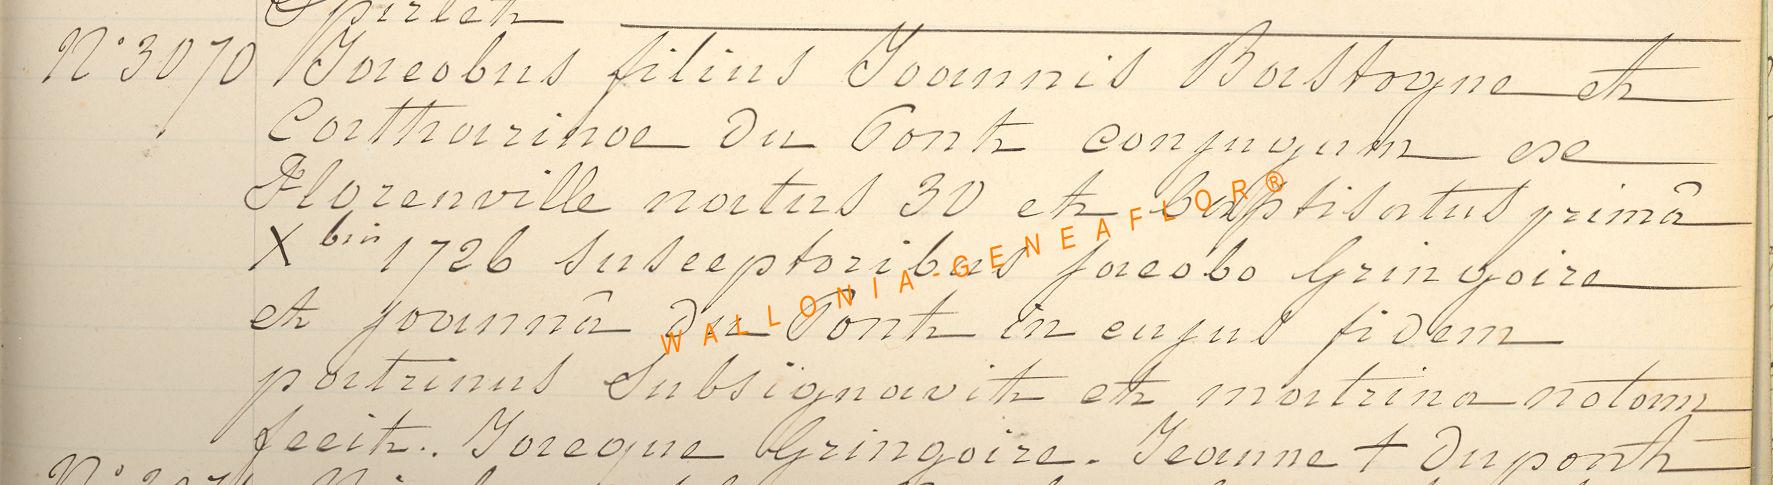 Spirlet
N° 3070 Jacobus filius Joannis Bastogne et
Catharinae du Pont conjugum ex
Florenville natus 30 et baptisatus primâ
Xbris 1726 susceptoribus jacobo Gringoire
et joannâ du Pont in cujus fidem
patrinus subsignavit et matrina notam
fecit. Jacque Gringoire. Jeanne + Dupont
WALLONIA-GENEAFLOR®